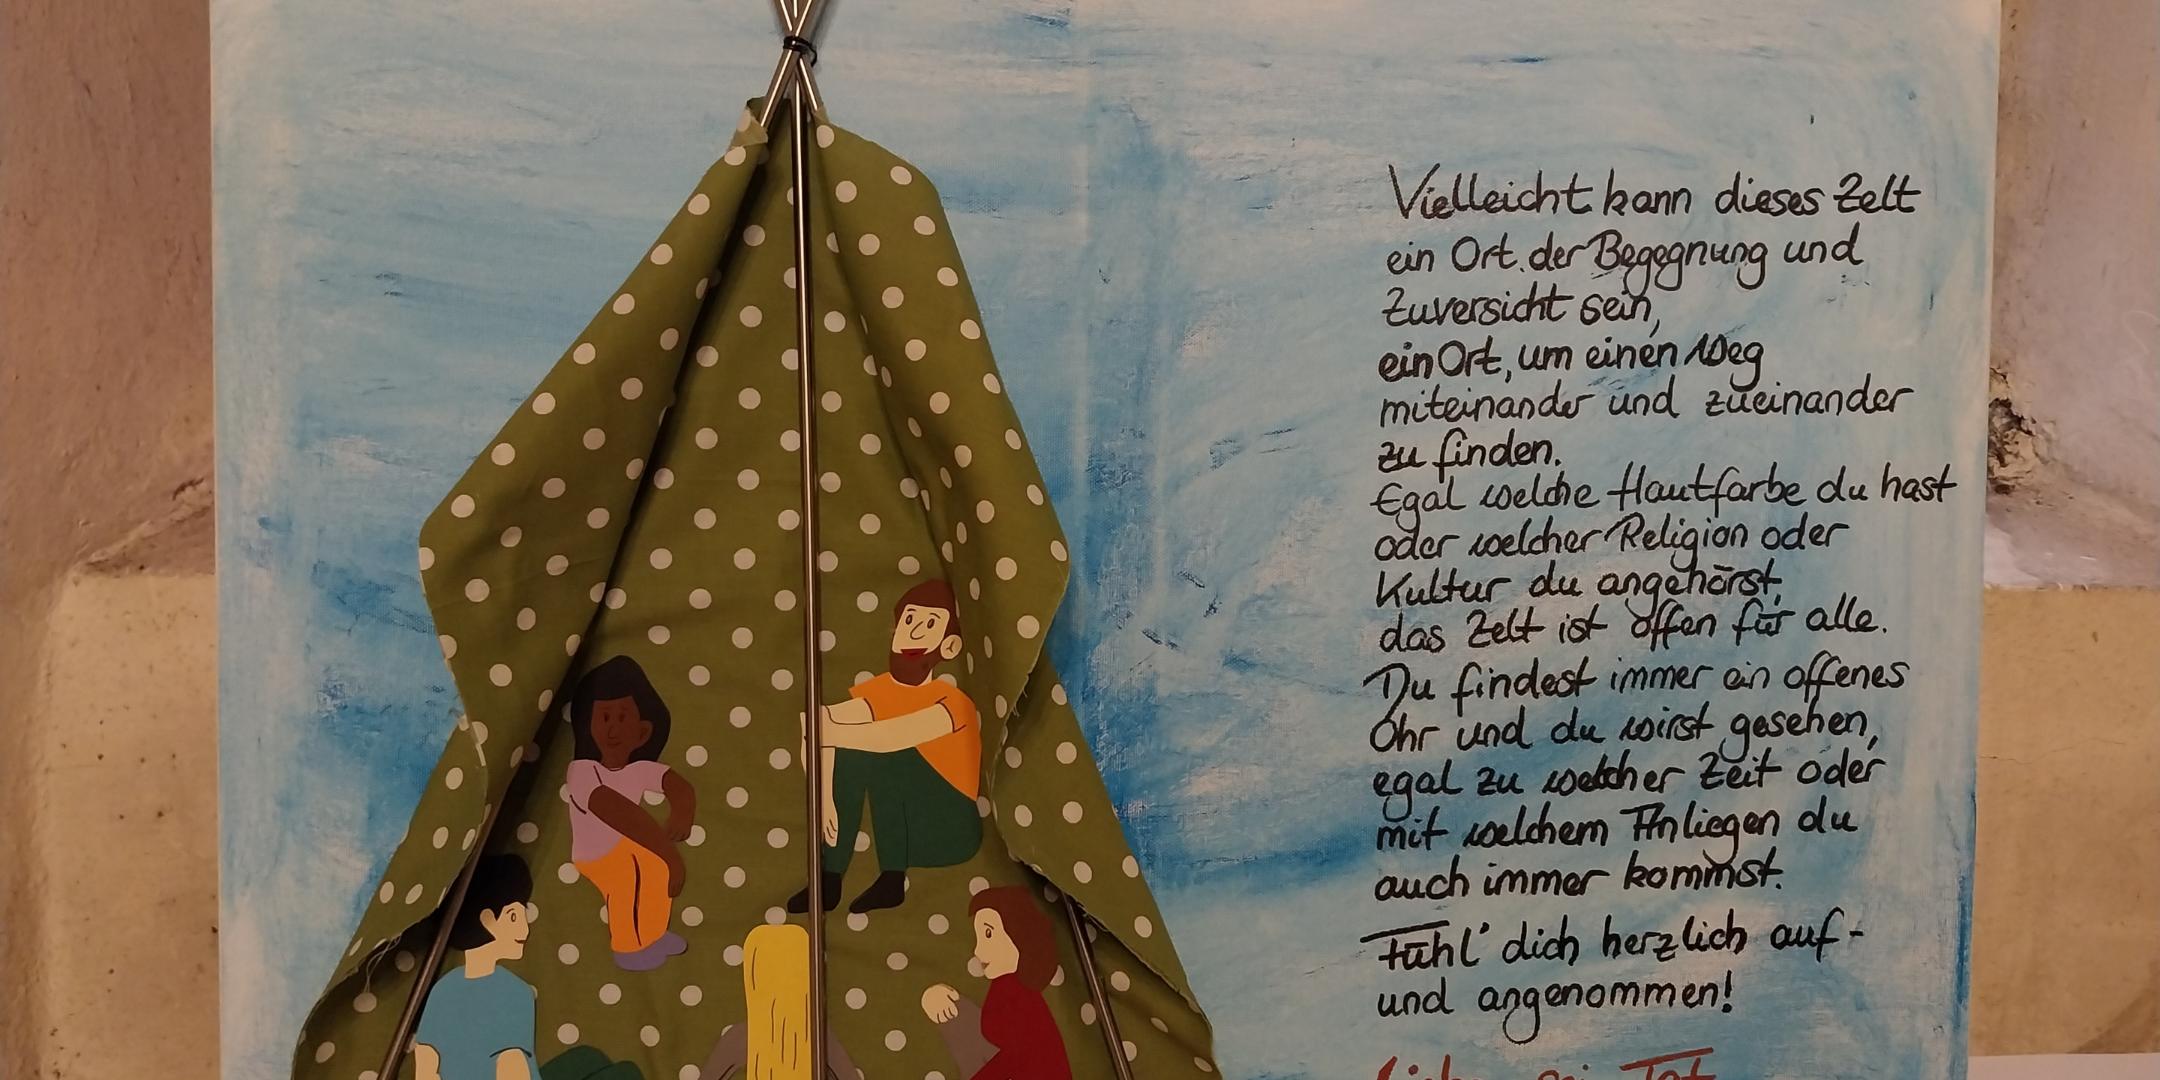 Vielleicht kann dieses Zelt
ein Ort der Begegnung und
Zuversicht sein,
ein Ort, um einen Weg
miteinander und zueinander
zu finden.
Egal welche Hautfarbe du hast
oder welcher Religion oder
Kultur du angehörst,
das Zelt ist offen für alle.
Du findest immer ein offenes
Ohr und du wirst gesehen,
egal zu welcher Zeit oder
mit welchem Anliegen du
auch immer kommst.
Fühl' dich herzlich auf-
und angenommen!